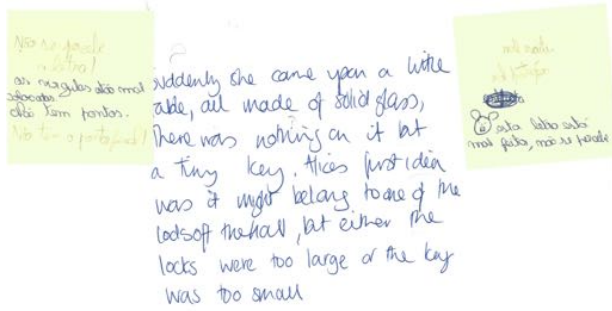 as virgulas estão mal
colocadas.
não tem pontos.
suddenly she came upon a little
table, all made of solid glass,
There was nothing on it but
a tiny key, Alices first idea
was it might belong to one of the
locks off the hall, but either the
locks were too large or the key
was too small
esta letra está
mal feita, não se percebe